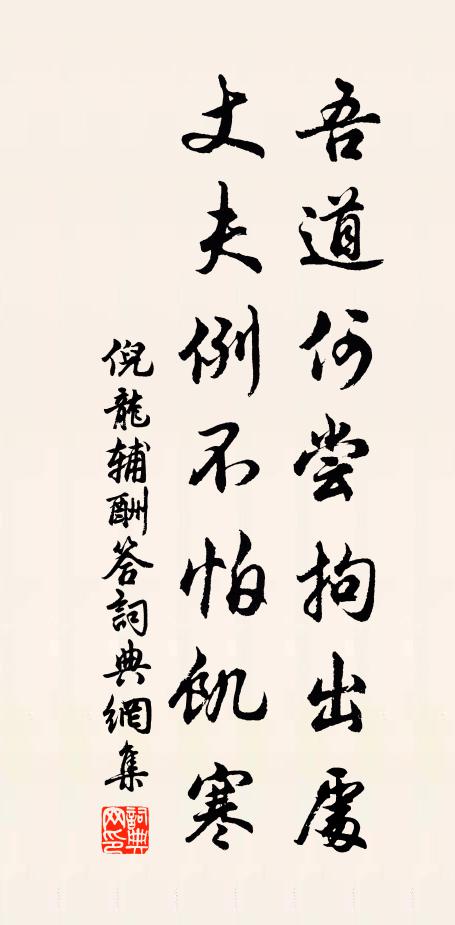 吾道何尝拘出處
丈夫例不怕飢寒
倪龍辅酬答詞典網集
詞典网印